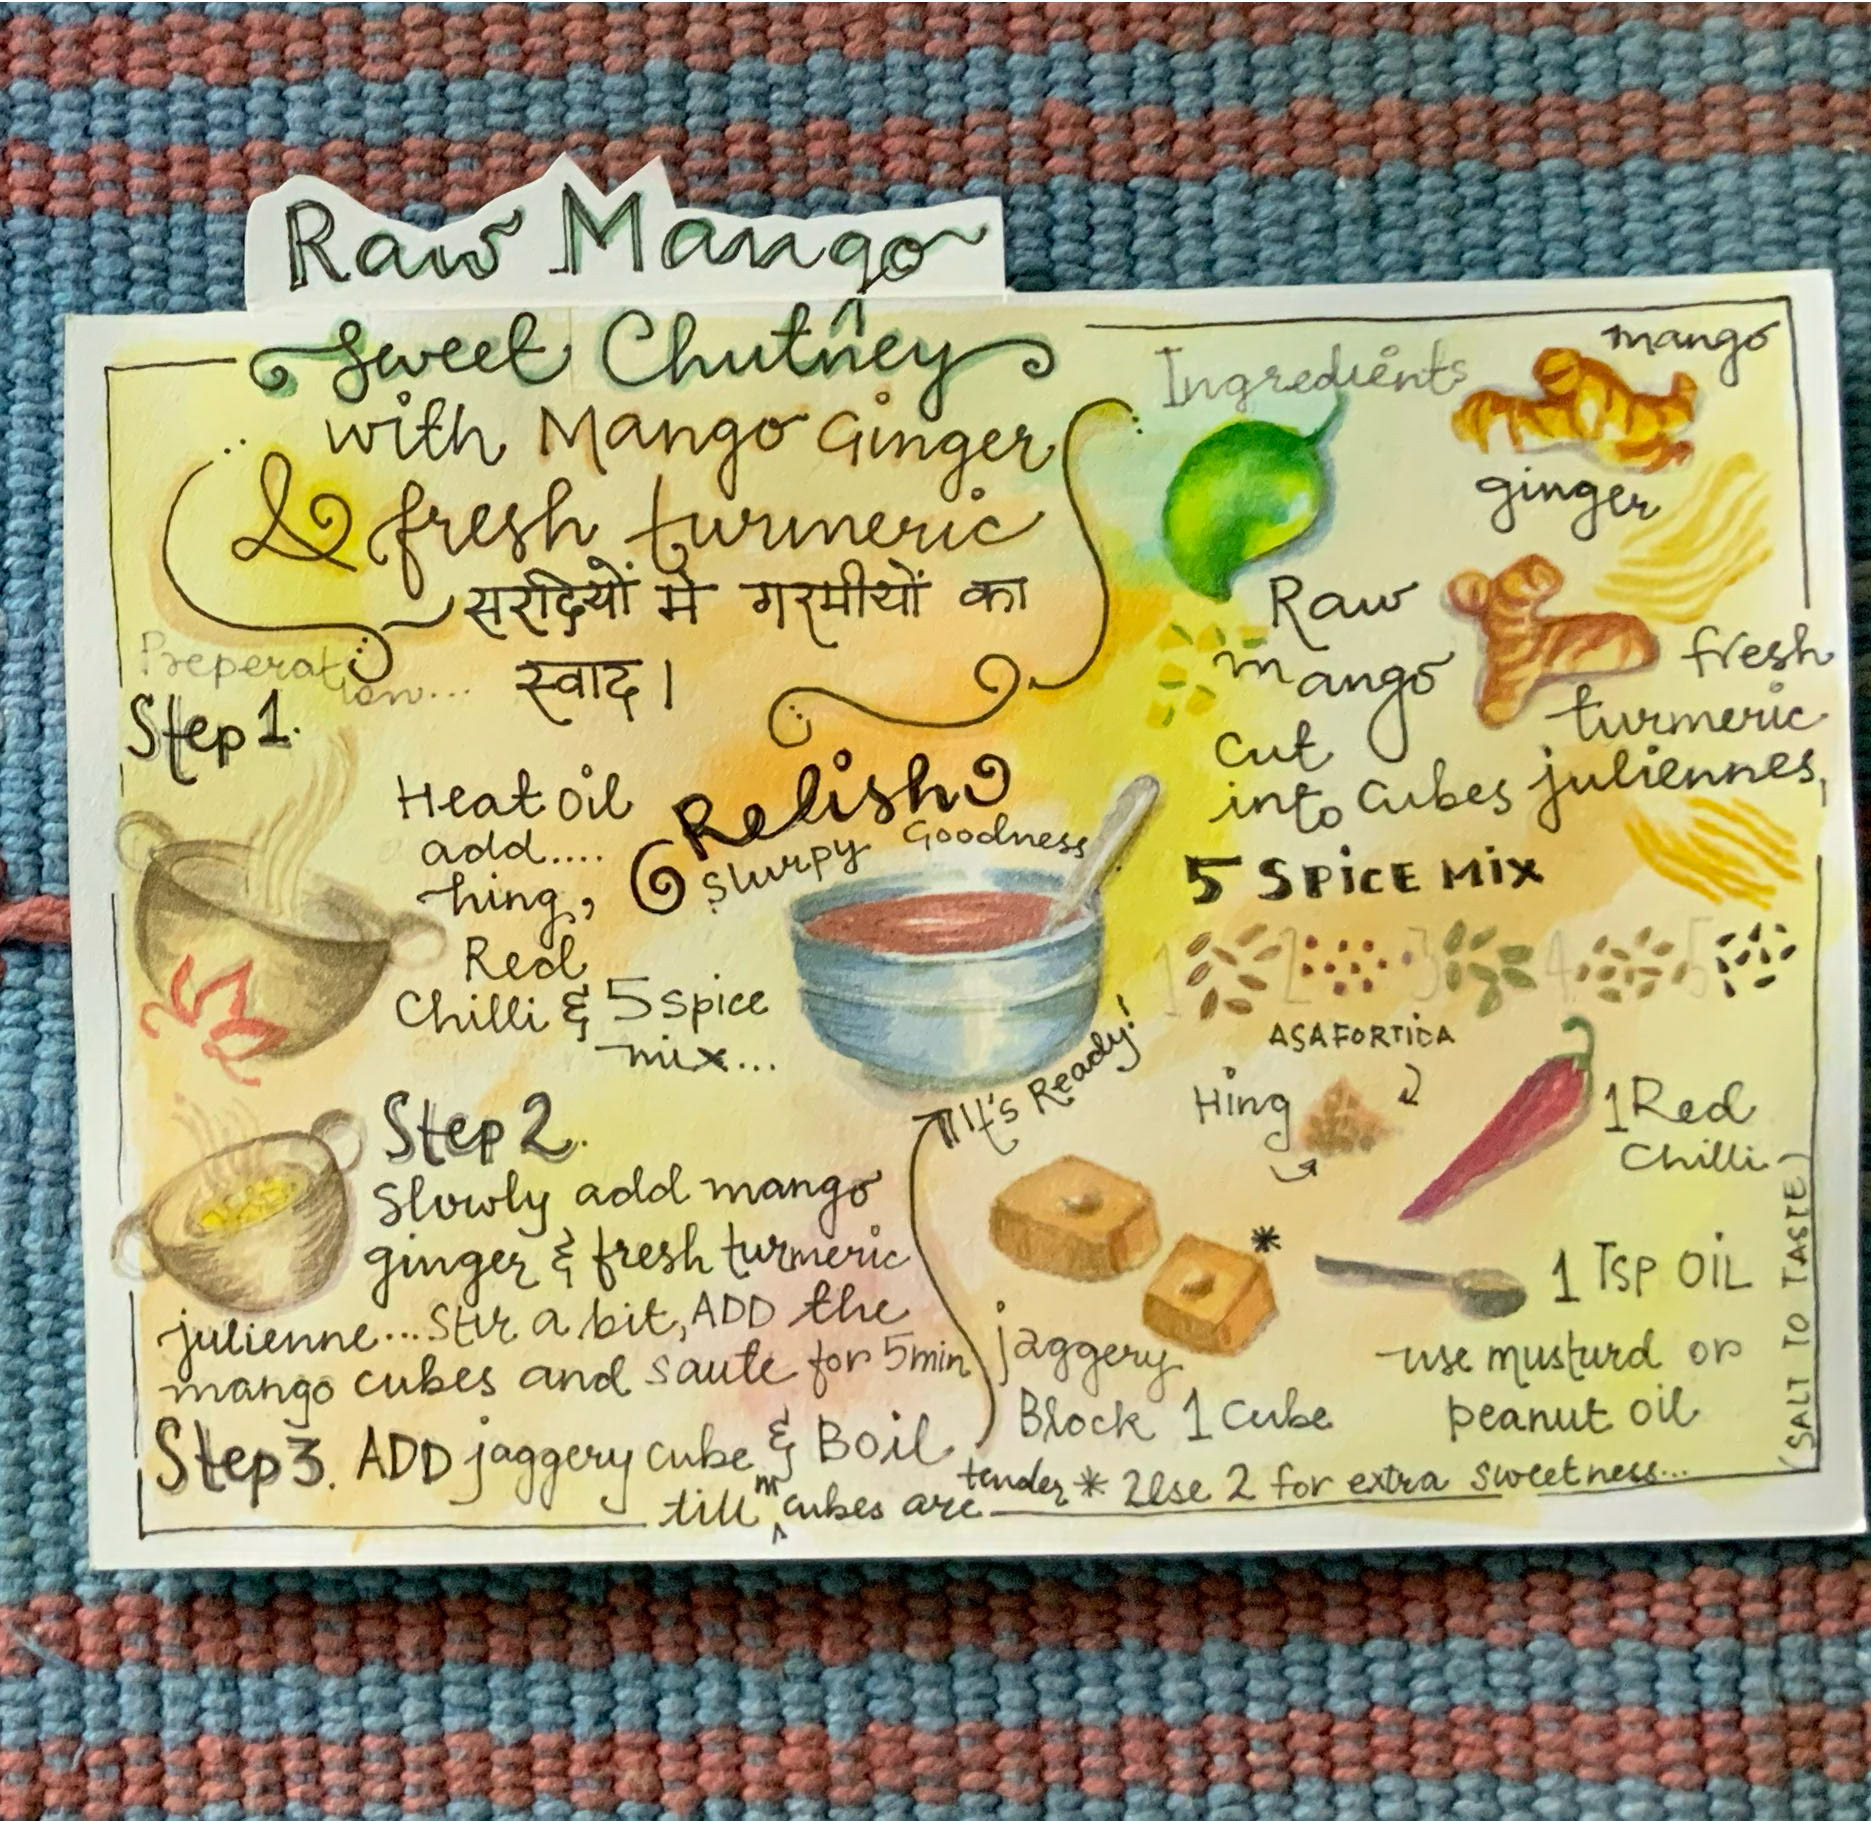 Raw Mango
Sweet Chutney
with Mango Ginger
& fresh turmeric
सरदियों मे गरमीयों का
स्वाद।
Preperation...
Step 1.
Heat oil
add....
hing,
Red
Chilli & 5 spice
mix...
Relish
Slurpy Goodness
It's Ready!
Step 2.
Slowly add mango
ginger & fresh turmeric
julienne...Stir a bit, ADD the
mango cubes and saute for 5min
Step 3. ADD jaggery cube & Boil
till m cubes are tender
Ingredients
mango
ginger
Raw
mango
cut
into cubes
fresh
turmeric
juliennes,
5 SPiCE MiX
1 2 3 4 5
ASAFORTICA
Hing
1 Red
Chilli
*
1 TSP OIL
use musturd or
peanut oil
jaggery
Block 1 Cube
* Use 2 for extra sweetness...
(SALT TO TASTE)